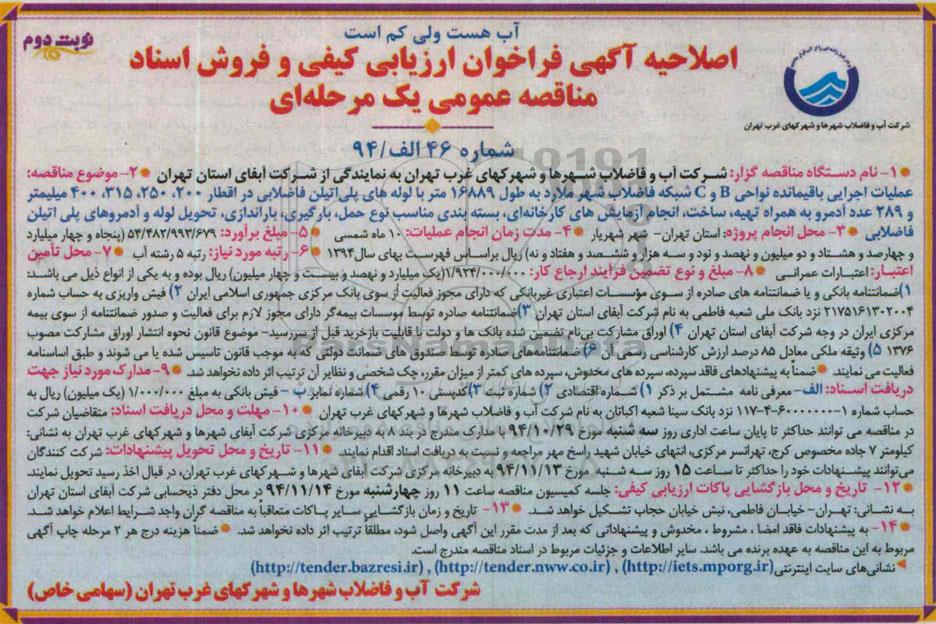 آب هست ولی کم است
نوبت دوم
اصلاحیه آگهی فراخوان ارزیابی کیفی و فروش اسناد
مناقصه عمومی یک مرحله‌ای
شرکت آب و فاضلاب شهرها و شهرکهای غرب تهران
شماره ۴۶ الف/۹۴
۱- نام دستگاه مناقصه گزار: شرکت آب و فاضلاب شهرها و شهرکهای غرب تهران به نمایندگی از شرکت آبفای استان تهران ۲- موضوع مناقصه:
عملیات اجرایی باقیمانده نواحی B و C شبکه فاضلاب شهر ملارد به طول ۱۶۸۸۹ متر با لوله های پلی‌اتیلن فاضلابی در اقطار ۲۰۰، ۲۵۰، ۳۱۵، ۴۰۰ میلیمتر
و ۲۸۹ عدد آدمرو به همراه تهیه، ساخت، انجام آزمایش های کارخانه‌ای، بسته بندی مناسب نوع حمل، بارگیری، باراندازی، تحویل لوله و آدمروهای پلی اتیلن
فاضلابی ۳- محل انجام پروژه: استان تهران- شهر شهریار ۴- مدت زمان انجام عملیات: ۱۰ ماه شمسی ۵- مبلغ برآورد: ۵۴/۴۸۲/۹۹۳/۶۷۹ (پنجاه و چهار میلیارد
و چهارصد و هشتاد و دو میلیون و نهصد و نود و سه هزار و ششصد و هفتاد و نه) ریال براساس فهرست بهای سال ۱۳۹۴ ۶- رتبه مورد نیاز: رتبه ۵ رشته آب ۷- محل تأمین
اعتبار: اعتبارات عمرانی ۸- مبلغ و نوع تضمین فرآیند ارجاع کار: ۱/۹۲۴/۰۰۰/۰۰۰ (یک میلیارد و نهصد و بیست و چهار میلیون) ریال بوده و به یکی از انواع ذیل می باشد:
۱) ضمانتنامه بانکی و یا ضمانتنامه های صادره از سوی مؤسسات اعتباری غیربانکی که دارای مجوز فعالیت از سوی بانک مرکزی جمهوری اسلامی ایران ۲) فیش واریزی به حساب شماره
۲۱۷۵۱۶۱۳۰۲۰۰۴ نزد بانک ملی شعبه فاطمی به نام شرکت آبفای استان تهران ۳) ضمانتنامه صادره توسط مؤسسات بیمه‌گر دارای مجوز لازم برای فعالیت و صدور ضمانتنامه از سوی بیمه
مرکزی ایران در وجه شرکت آبفای استان تهران ۴) اوراق مشارکت بی‌نام تضمین شده بانک ها و دولت با قابلیت بازخرید قبل از سررسید- موضوع قانون نحوه انتشار اوراق مشارکت مصوب
۱۳۷۶ ۵) وثیقه ملکی معادل ۸۵ درصد ارزش کارشناسی رسمی آن ۶) ضمانتنامه‌های صادره توسط صندوق های ضمانت دولتی که به موجب قانون تاسیس شده یا می شوند و طبق اساسنامه
فعالیت می نمایند. ضمناً به پیشنهادهای فاقد سپرده، سپرده های مخدوش، سپرده های کمتر از میزان مقرر، چک شخصی و نظایر آن ترتیب اثر داده نخواهد شد. ۹- مدارک مورد نیاز جهت
دریافت اسناد: الف- معرفی نامه مشتمل بر ذکر ۱) شماره اقتصادی ۲) شماره ثبت ۳) کدپستی ۱۰ رقمی ۴) شماره نمابر ب- فیش بانکی به مبلغ ۱/۰۰۰/۰۰۰ (یک میلیون) ریال به
حساب شماره ۱-۶۰۰۰۰۰۰۰-۴-۱۱۷ نزد بانک سینا شعبه اکباتان به نام شرکت آب و فاضلاب شهرها و شهرکهای غرب تهران ۱۰- مهلت و محل دریافت اسناد: متقاضیان شرکت
در مناقصه می توانند حداکثر تا پایان ساعت اداری روز سه شنبه مورخ ۹۴/۱۰/۲۹ با مدارک مندرج در بند ۸ به دبیرخانه مرکزی شرکت آبفای شهرها و شهرکهای غرب تهران به نشانی:
کیلومتر ۷ جاده مخصوص کرج، تهرانسر مرکزی، انتهای خیابان شهید راسخ مهر مراجعه و نسبت به دریافت اسناد اقدام نمایند. ۱۱- تاریخ و محل تحویل پیشنهادات: شرکت کنندگان
می‌توانند پیشنهادات خود را حداکثر تا ساعت ۱۵ روز سه شنبه مورخ ۹۴/۱۱/۱۳ به دبیرخانه مرکزی شرکت آبفای شهرها و شهرکهای غرب تهران، در قبال اخذ رسید تحویل نمایند.
۱۲- تاریخ و محل بازگشایی پاکات ارزیابی کیفی: جلسه کمیسیون مناقصه ساعت ۱۱ روز چهارشنبه مورخ ۹۴/۱۱/۱۴ در محل دفتر ذیحسابی شرکت آبفای استان تهران
به نشانی: تهران- خیابان فاطمی، نبش خیابان حجاب تشکیل خواهد شد. ۱۳- تاریخ و زمان بازگشایی سایر پاکات متعاقباً به مناقصه گران واجد شرایط اعلام خواهد شد.
۱۴- به پیشنهادات فاقد امضا، مشروط، مخدوش و پیشنهاداتی که بعد از مدت مقرر این آگهی واصل شود، مطلقا ترتیب اثر داده نخواهد شد. ضمناً هزینه درج هر ۲ مرحله چاپ آگهی
مربوط به این مناقصه به عهده برنده می باشد. سایر اطلاعات و جزئیات مربوط در اسناد مناقصه مندرج است.
نشانی‌های سایت اینترنتی (http://iets.mporg.ir) , (http://tender.nww.co.ir) , (http://tender.bazresi.ir)
شرکت آب و فاضلاب شهرها و شهرکهای غرب تهران (سهامی خاص)